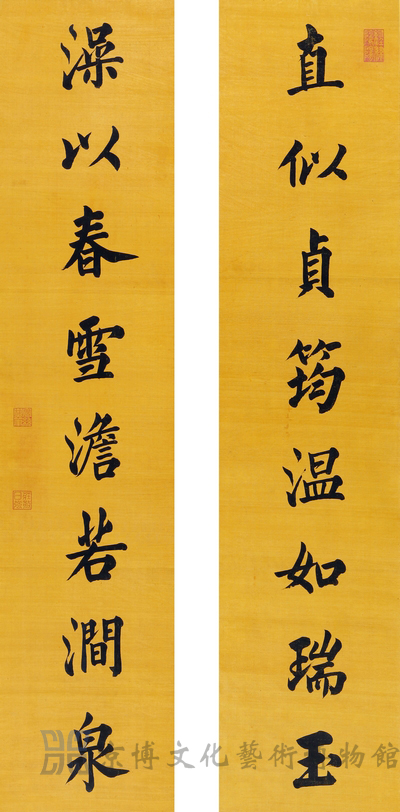 直似貞筠温如瑞玉
澡以春雪澹若澗泉
京博文化藝術博物館